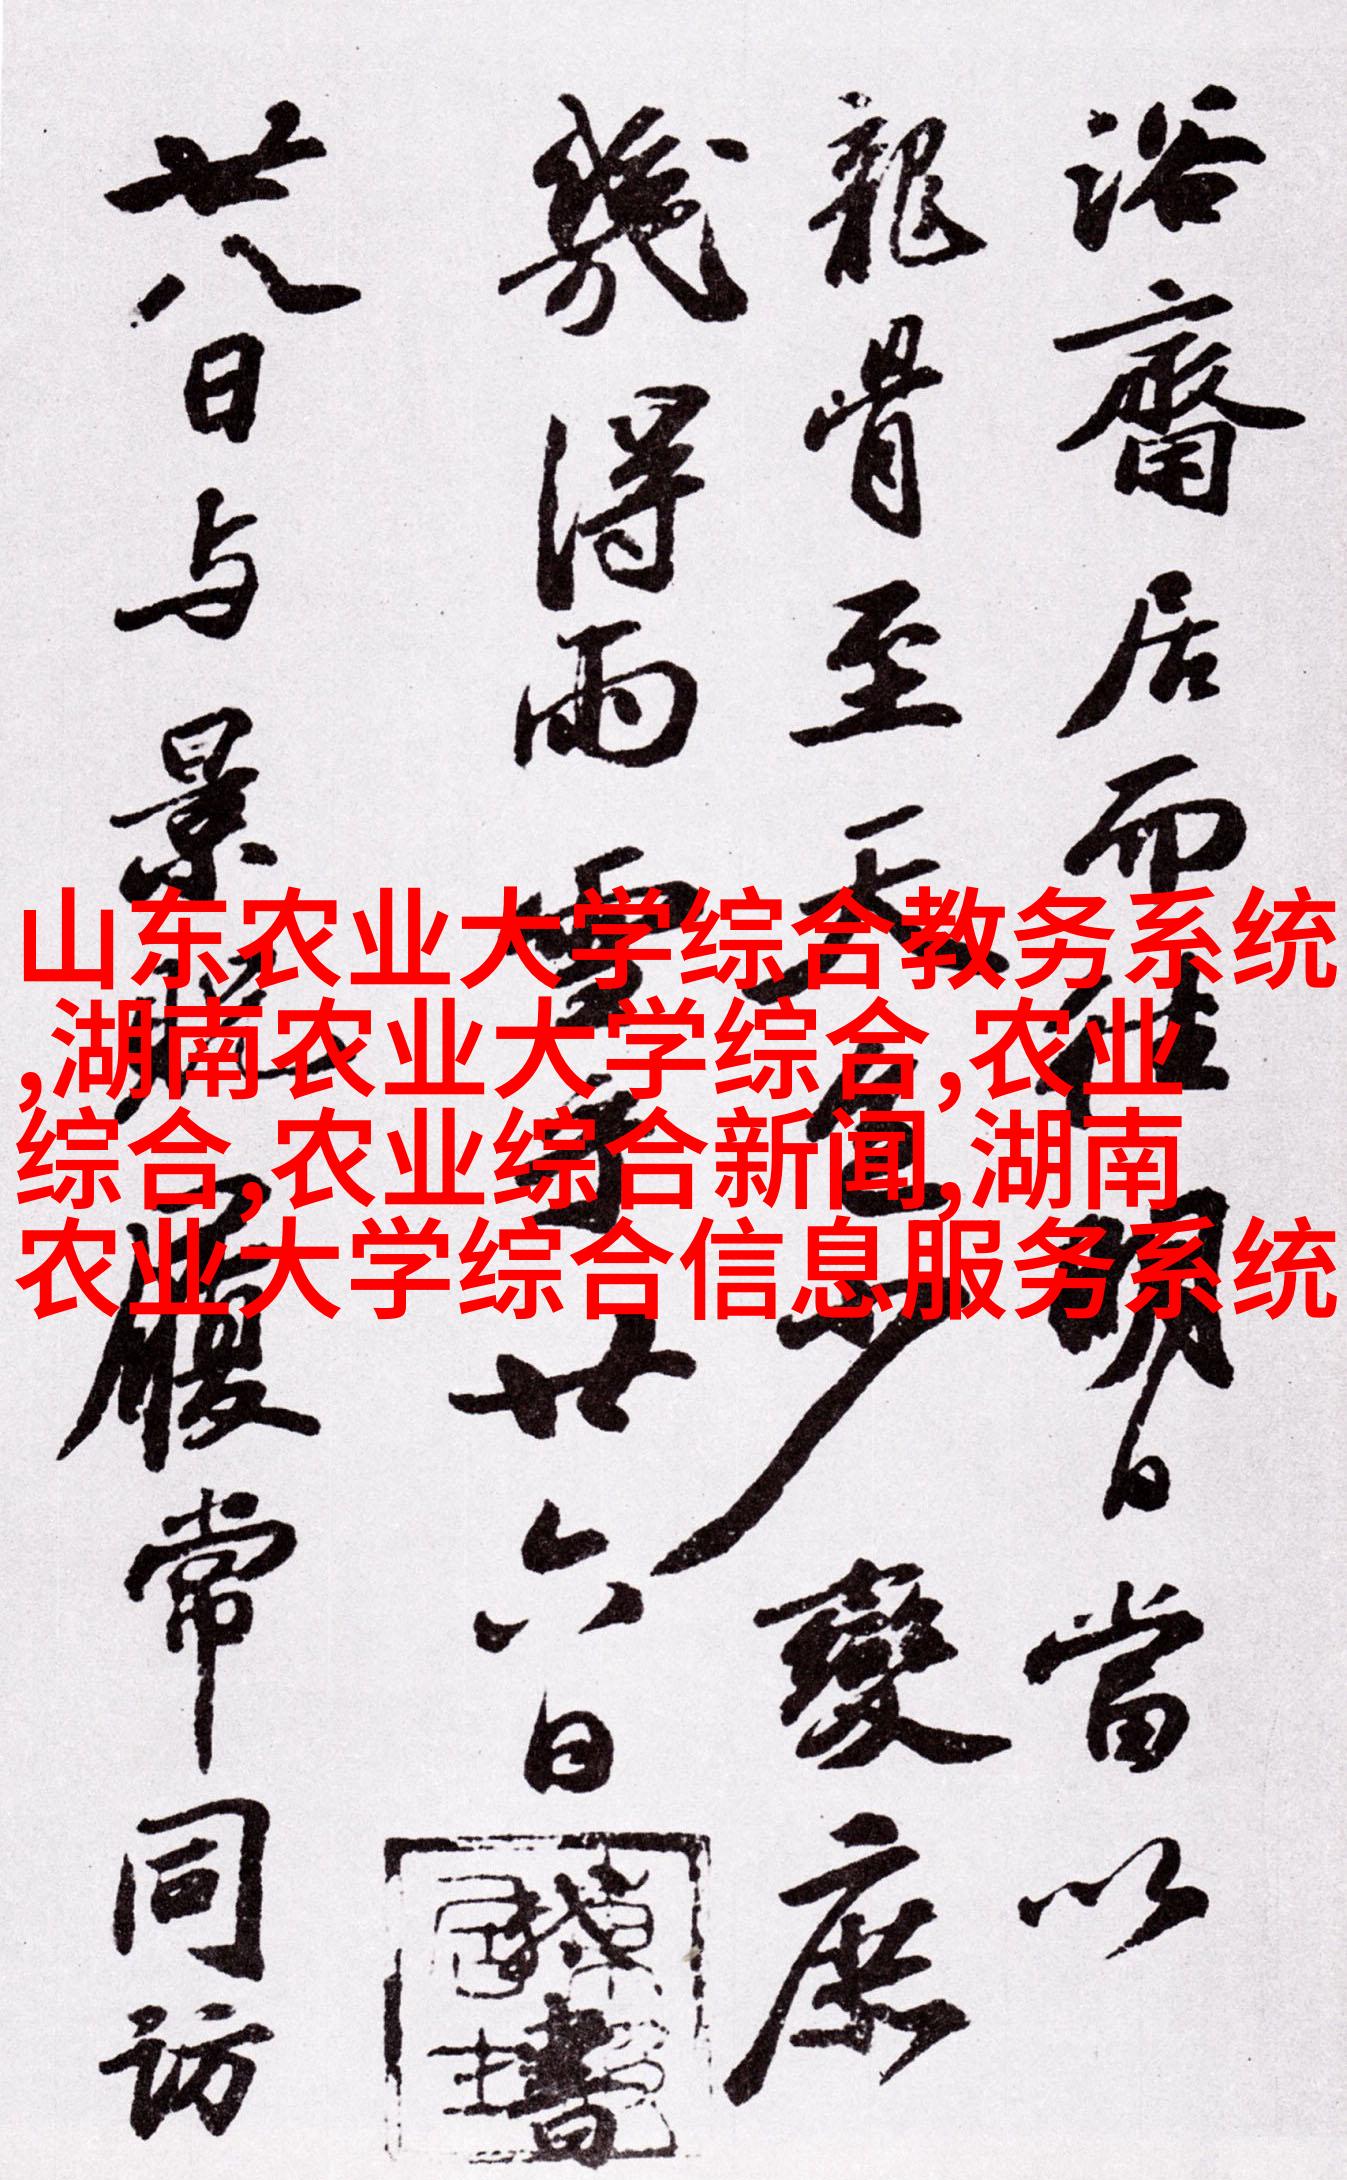 浴齋居而往明日當以
龍骨至天色少變庶
幾得雨雪子廿六日
書
廿八日与景履常同訪
山东农业大学综合教务系统
,湖南农业大学综合,农业
综合,农业综合新闻,湖南
农业大学综合信息服务系统